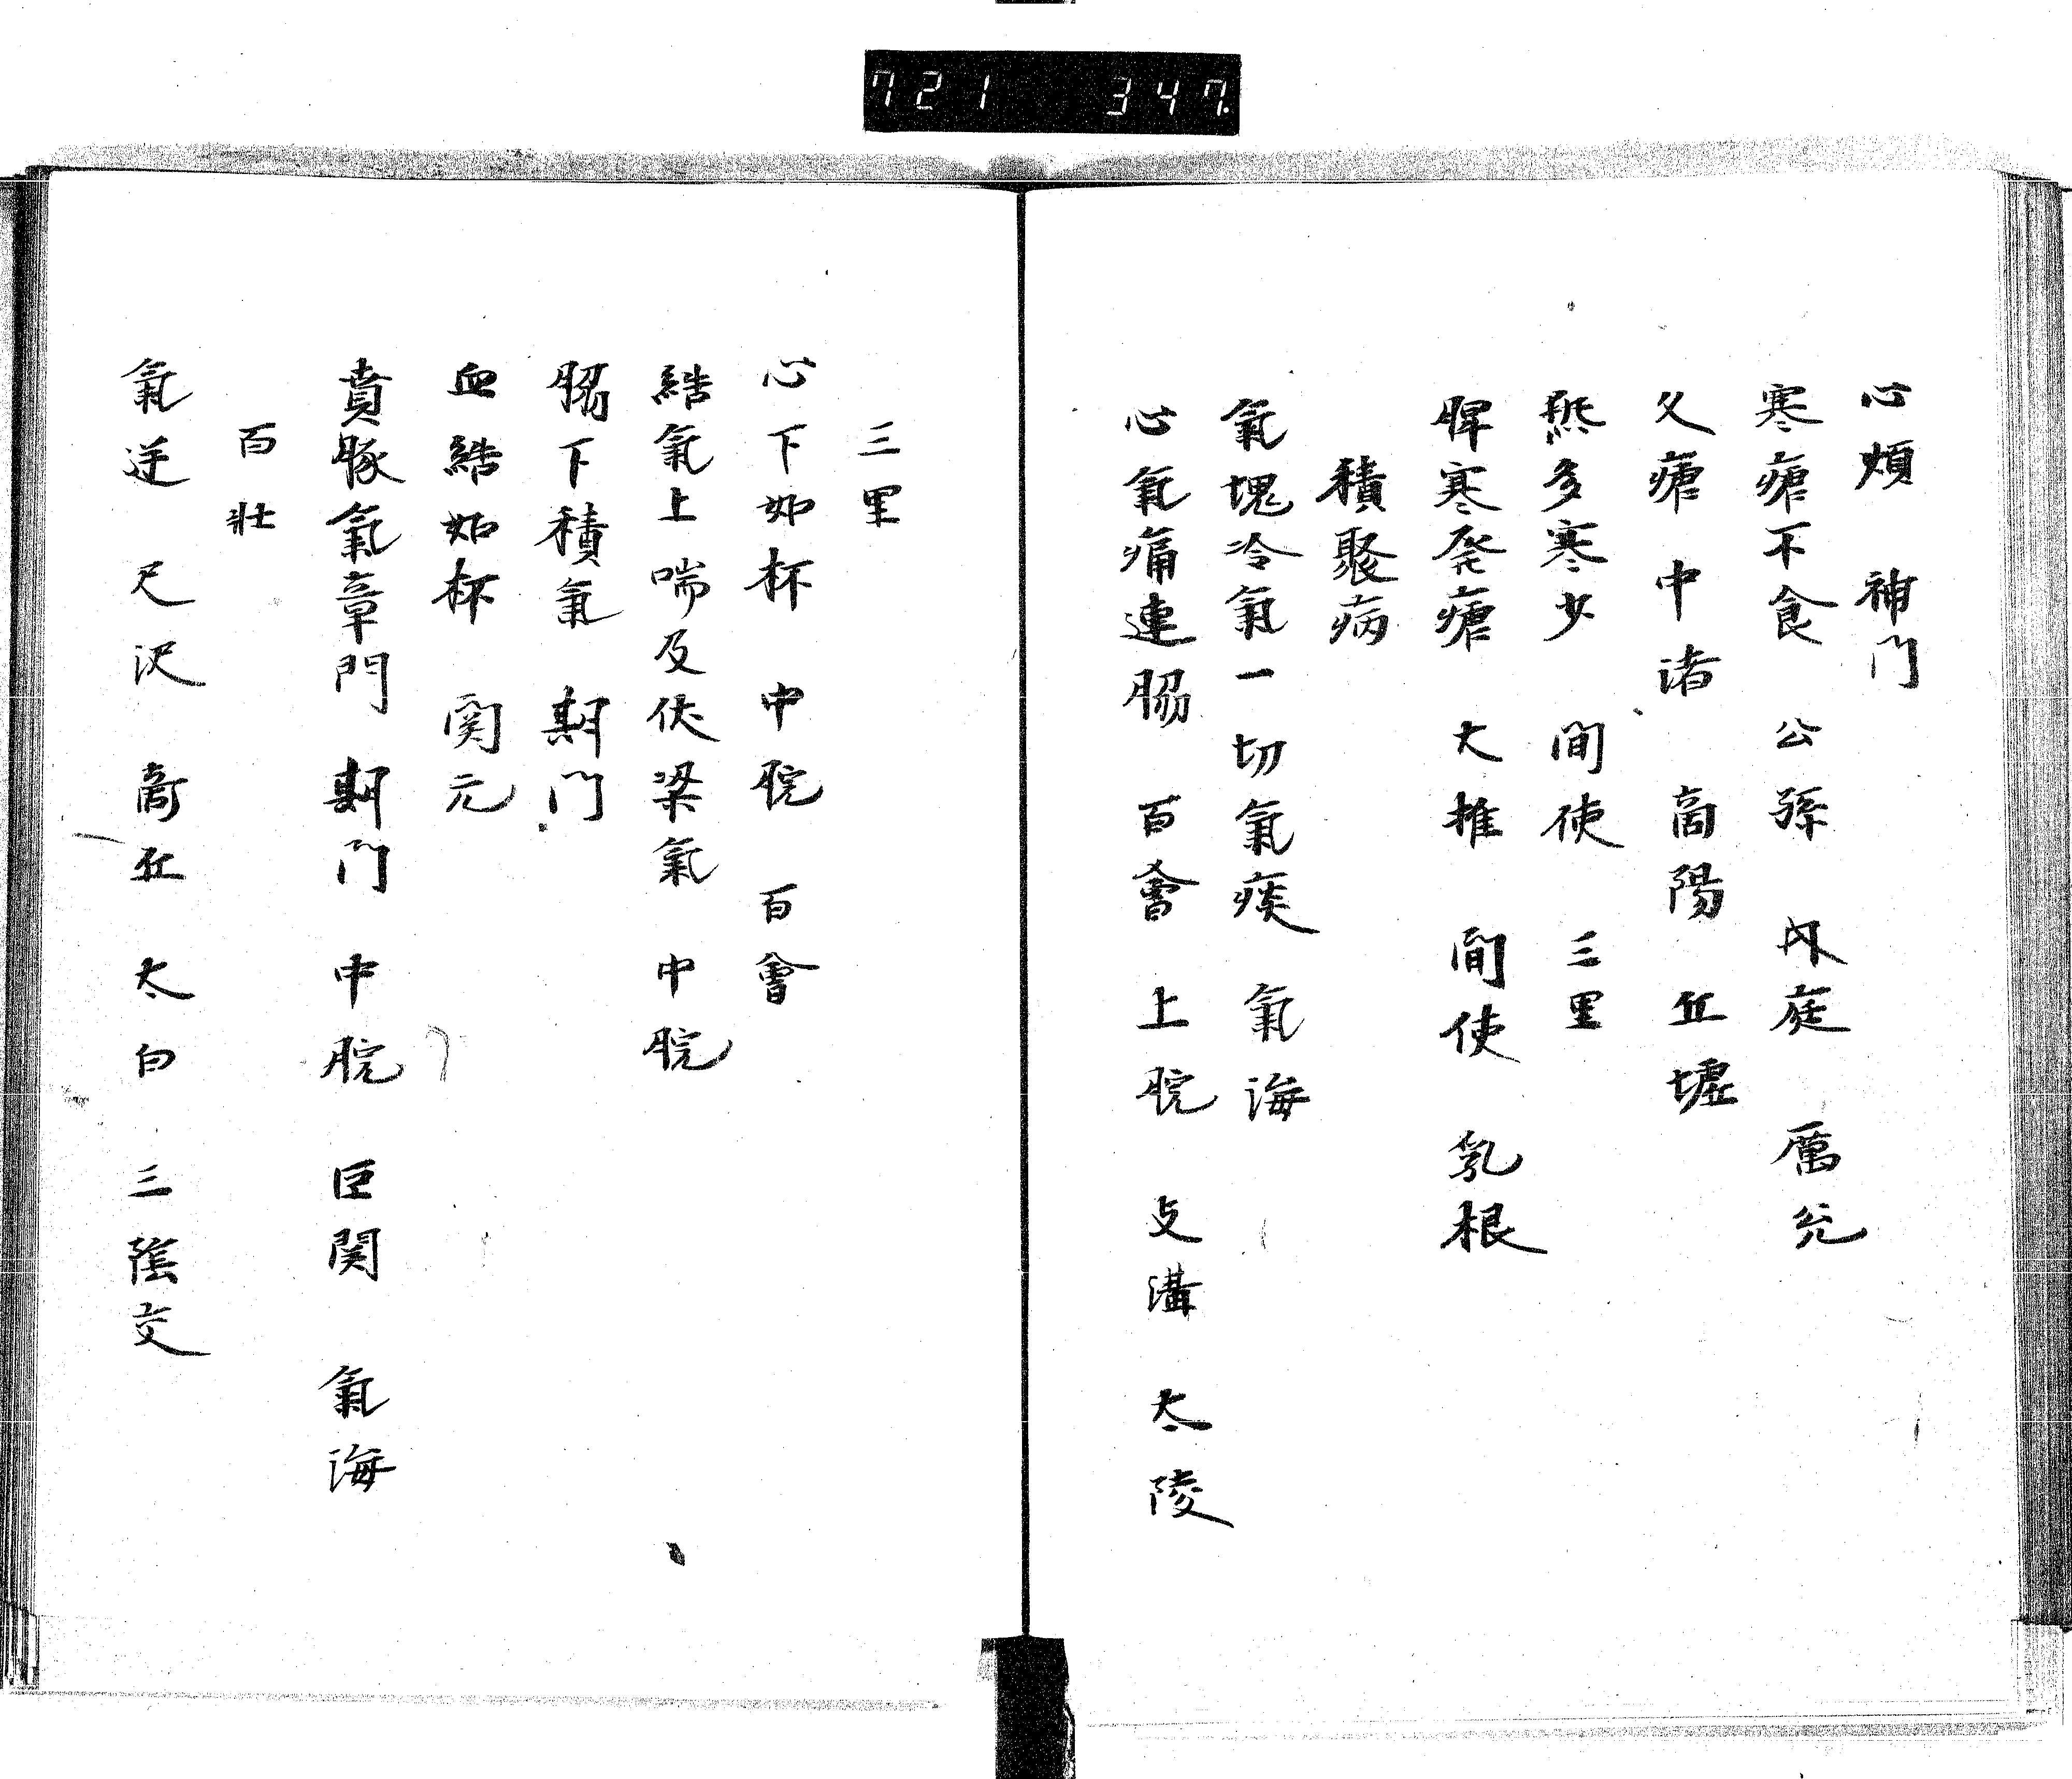 721 347.
心煩 神門
寒瘧不食 公孫 内庭 厲兊
久瘧 中渚 商陽 丘墟
熱多寒少 間使 三里
脾寒発瘧 大推 間使 乳根
積聚病
氣塊冷氣一切氣疾 氣海
心氣痛連脇 百會 上脘 支溝 太陵
三里
心下如杯 中脘 百會
結氣上喘及伏梁氣 中脘
脇下積氣 期門
血結如杯 関元
賁豚氣章門 期門 中脘 巨関 氣海
百壮
氣逆 尺沢 商丘 太白 三陰交